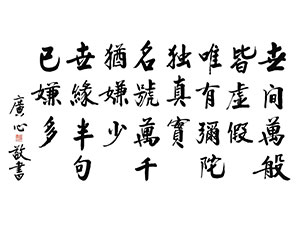 世間萬般
皆虛假
唯有彌陀
独真寶
名號萬千
猶嫌少
世緣半句
已嫌多
廣心敬書